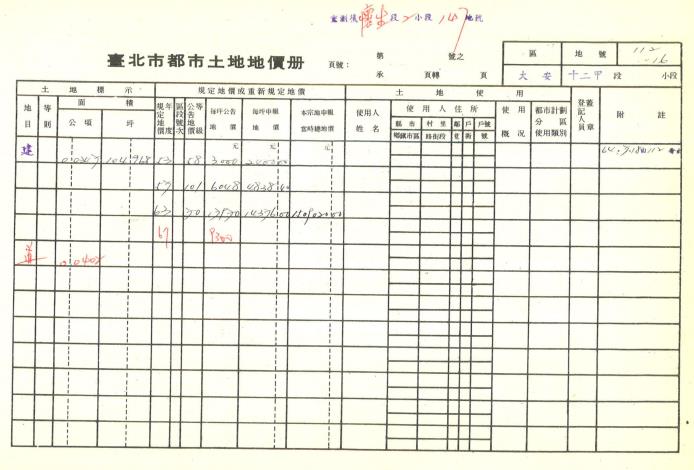 重測後 懷生 段 2 小段 147 地號
臺北市都市土地地價册
頁號：
第 號之
承 頁轉 頁
區 地號 112-16
大安 十二甲 段 小段
土地標示 規定地價或重新規定地價 土地使用
地目 等則 面積 公頃 坪
規定地價年度 區段號次 公告地價等級 每坪公告地價 每坪申報地價 本宗地申報當時總地價
使用人姓名 使用人住所 縣市 村里 鄰 戶 戶號 鄉鎮市區 路街段 巷 衖 號
使用概況 都市計劃分區使用類別 登記人員蓋章 附註
元 元 元
建 0.0347 104.968 53 58 3000 2400.00
64.9.18 112
57 101 6048 4838.40
63 30
67 9300
道 0.0402